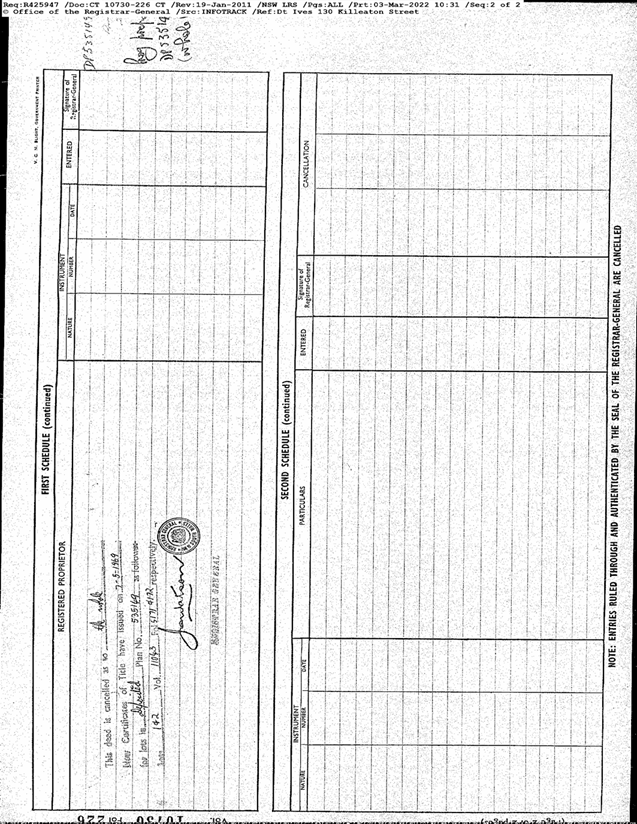 Req:R425947 /Doc:CT 10730-226 CT /Rev:19-Jan-2011 /NSW LRS /Pgs:ALL /Prt:03-Mar-2022 10:31 /Seq:2 of 2
© Office of the Registrar-General /Src:INFOTRACK /Ref:Dt Ives 130 Killeaton Street
FIRST SCHEDULE (continued)
REGISTERED PROPRIETOR
INSTRUMENT
NATURE
NUMBER
DATE
ENTERED
Signature of
Registrar-General
This deed is cancelled as to the whole
New Certificates of Title have issued on 7-5-1969
for lots in deposited Plan No. 535169 as follows:-
Lots 1 & 2 Vol. 11063 Fol. 171 & 172 respectively.
REGISTRAR GENERAL
SECOND SCHEDULE (continued)
INSTRUMENT
NATURE
NUMBER
DATE
PARTICULARS
ENTERED
Signature of
Registrar-General
CANCELLATION
NOTE: ENTRIES RULED THROUGH AND AUTHENTICATED BY THE SEAL OF THE REGISTRAR-GENERAL ARE CANCELLED